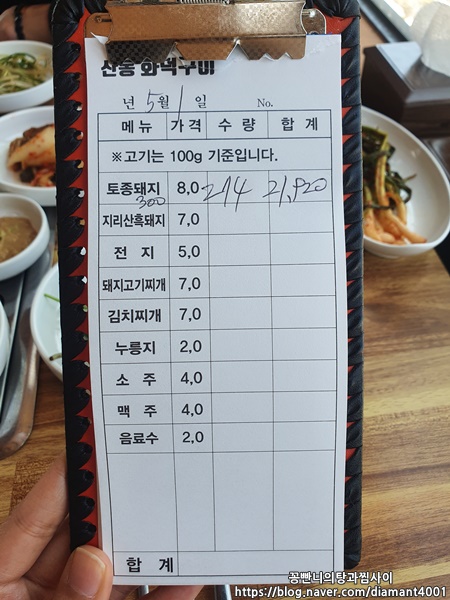 산동 화덕구이
년 5월 1일 No.
메뉴 가격 수량 합계
※고기는 100g 기준입니다.
토종돼지 8,0 274 21,920
300
지리산흑돼지 7,0
전지 5,0
돼지고기찌개 7,0
김치찌개 7,0
누룽지 2,0
소주 4,0
맥주 4,0
음료수 2,0
합계
꽁빤늬의탕과찜사이
https://blog.naver.com/diamant4001